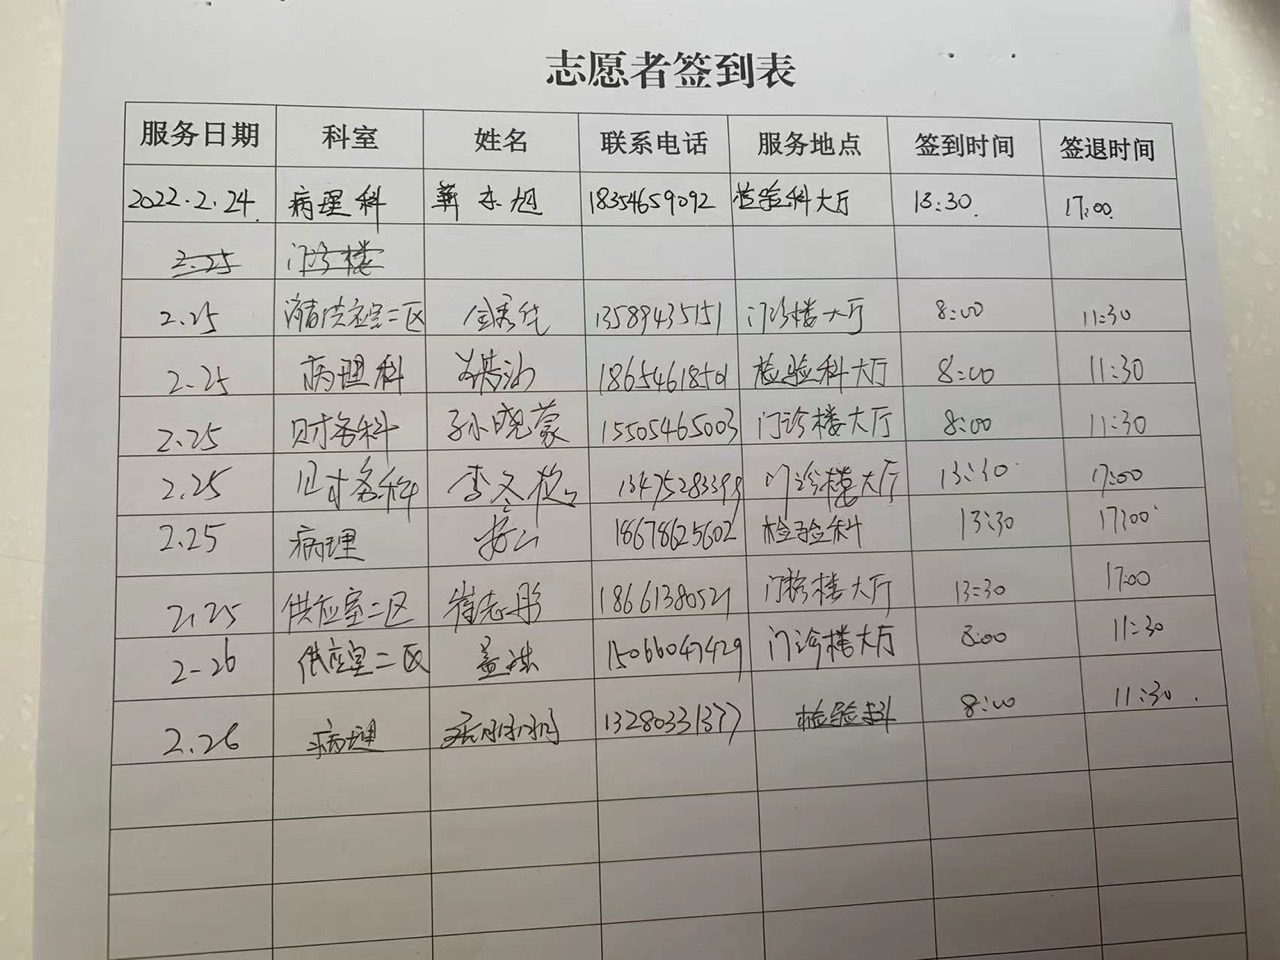 志愿者签到表
服务日期 科室 姓名 联系电话 服务地点 签到时间 签退时间
2022.2.24. 病理科 东旭 18354659092 检验科大厅 13:30. 17:00.
2.25 门诊楼
2.25 二区 13589435151 门诊楼大厅 8:00 11:30
2.25 病理科 18654618501 检验科大厅 8:00 11:30
2.25 财务科 孙晓蒙 15505465003 门诊楼大厅 8:00 11:30
2.25 财务科 李冬 13475283399 门诊楼大厅 13:30 17:00
2.25 病理 18678625602 检验科 13:30 17:00
2.25 供应室二区 崔志彤 18661380521 门诊楼大厅 13:30 17:00
2-26 供应室二区 15066047429 门诊楼大厅 8:00 11:30
2.26 病理 13280331377 检验科 8:00 11:30.